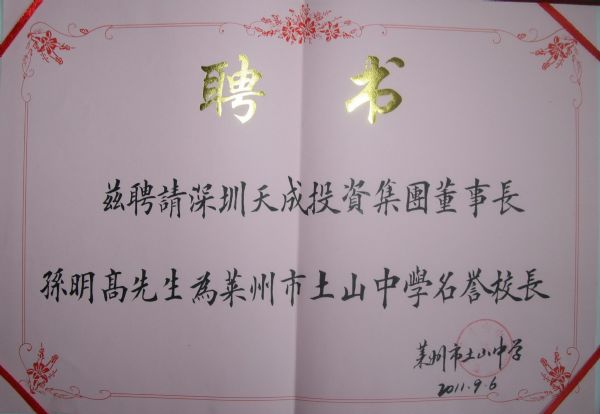 聘书
兹聘請深圳天成投資集團董事長
孫明髙先生為莱州市土山中學名誉校長
莱州市土山中学
2011.9.6